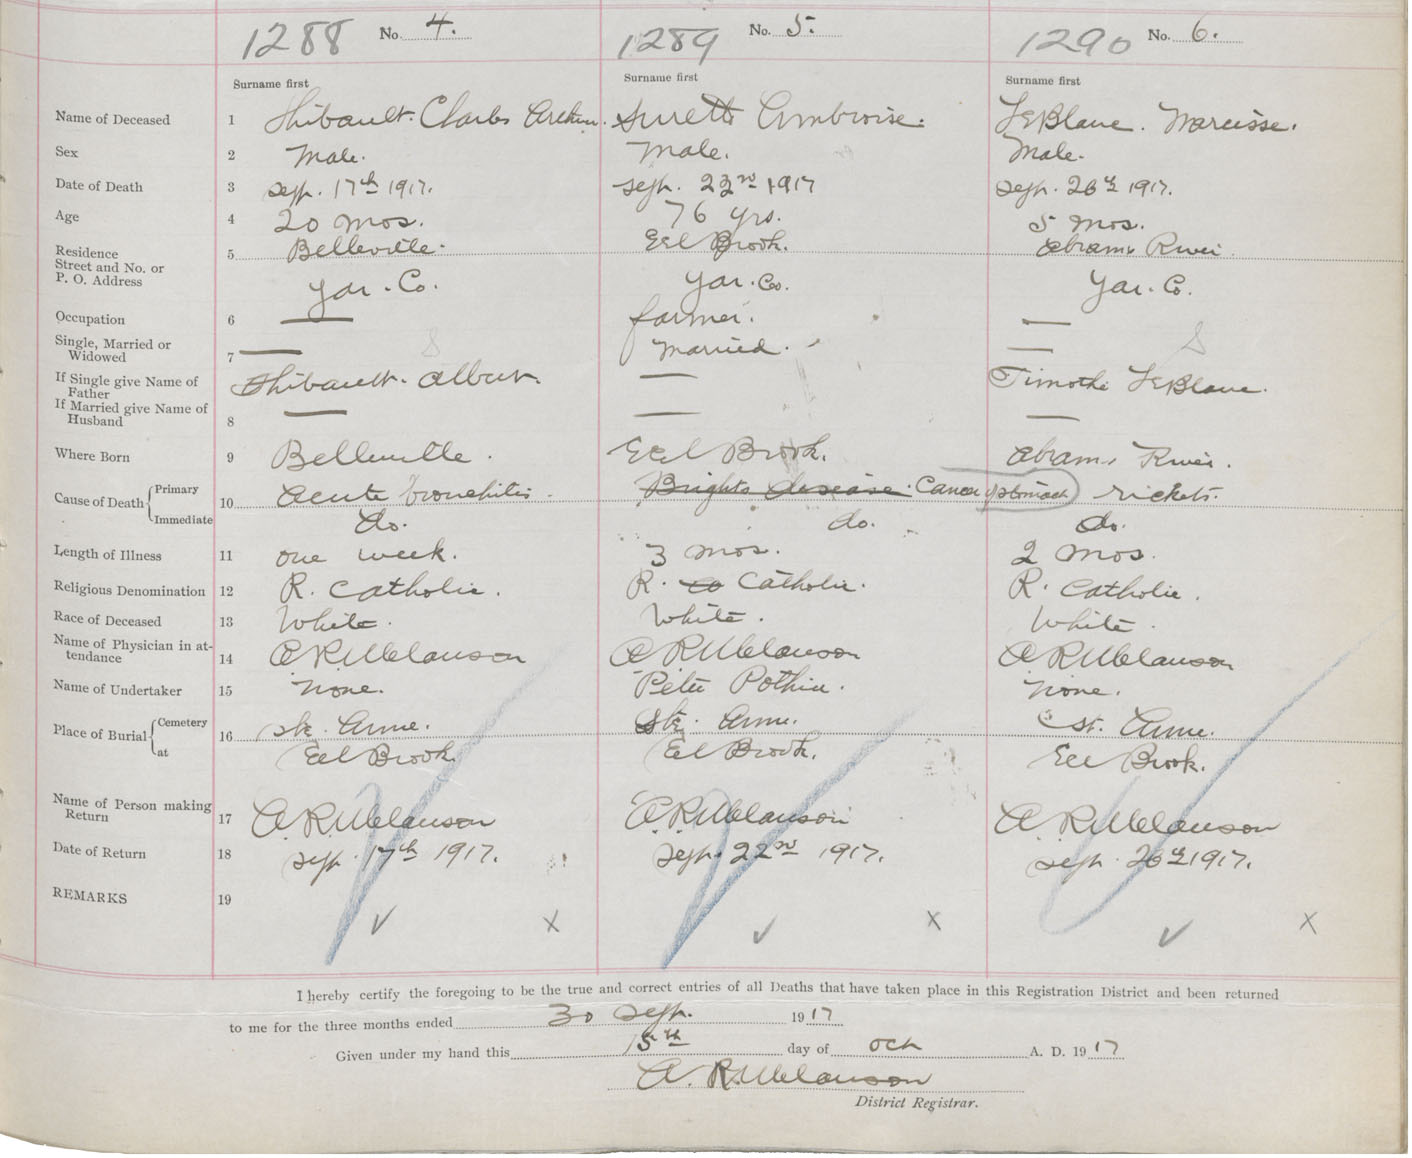 1288 No. 4. 1289 No. 5. 1290 No. 6.
Surname first Surname first Surname first
Name of Deceased 1 Thibault. Charles Arthur. Surette Ambroise. LeBlanc. Narcisse.
Sex 2 Male. Male. Male.
Date of Death 3 Sept. 17th 1917. Sept. 22nd 1917 Sept. 26th 1917.
Age 4 20 mos. 76 yrs. 5 mos.
Residence Belleville. Eel Brook. Abrams River.
Street and No. or 5
P. O. Address Yar. Co. Yar. Co. Yar. Co.
Occupation 6 — farmer. —
Single, Married or
Widowed 7 — S Married. — S
If Single give Name of
Father Thibault. Albert. — Timothe LeBlanc.
If Married give Name of
Husband 8 — — —
Where Born 9 Belleville. Eel Brook. Abrams River.
Cause of Death Primary 10 Acute bronchitis. Brights disease. Cancer of stomach rickets.
Immediate do. do. do.
Length of Illness 11 one week. 3 mos. 2 mos.
Religious Denomination 12 R. Catholic. R. Co Catholic. R. Catholic.
Race of Deceased 13 White. White. White.
Name of Physician in at-
tendance 14 A R Melanson A R Melanson A R Melanson
Name of Undertaker 15 None. Peter Pothier. None.
Place of Burial Cemetery 16 Ste. Anne. Ste. Anne. St. Anne.
at Eel Brook. Eel Brook. Eel Brook.
Name of Person making
Return 17 A. R. Melanson A. R. Melanson A. R. Melanson
Date of Return 18 Sept. 17th 1917. Sept. 22nd 1917. Sept. 26th 1917.
REMARKS 19
✓ X ✓ X ✓ X
I hereby certify the foregoing to be the true and correct entries of all Deaths that have taken place in this Registration District and been returned
to me for the three months ended 30 Sept. 1917
Given under my hand this 15th day of Oct A. D. 1917
A. R. Melanson
District Registrar.